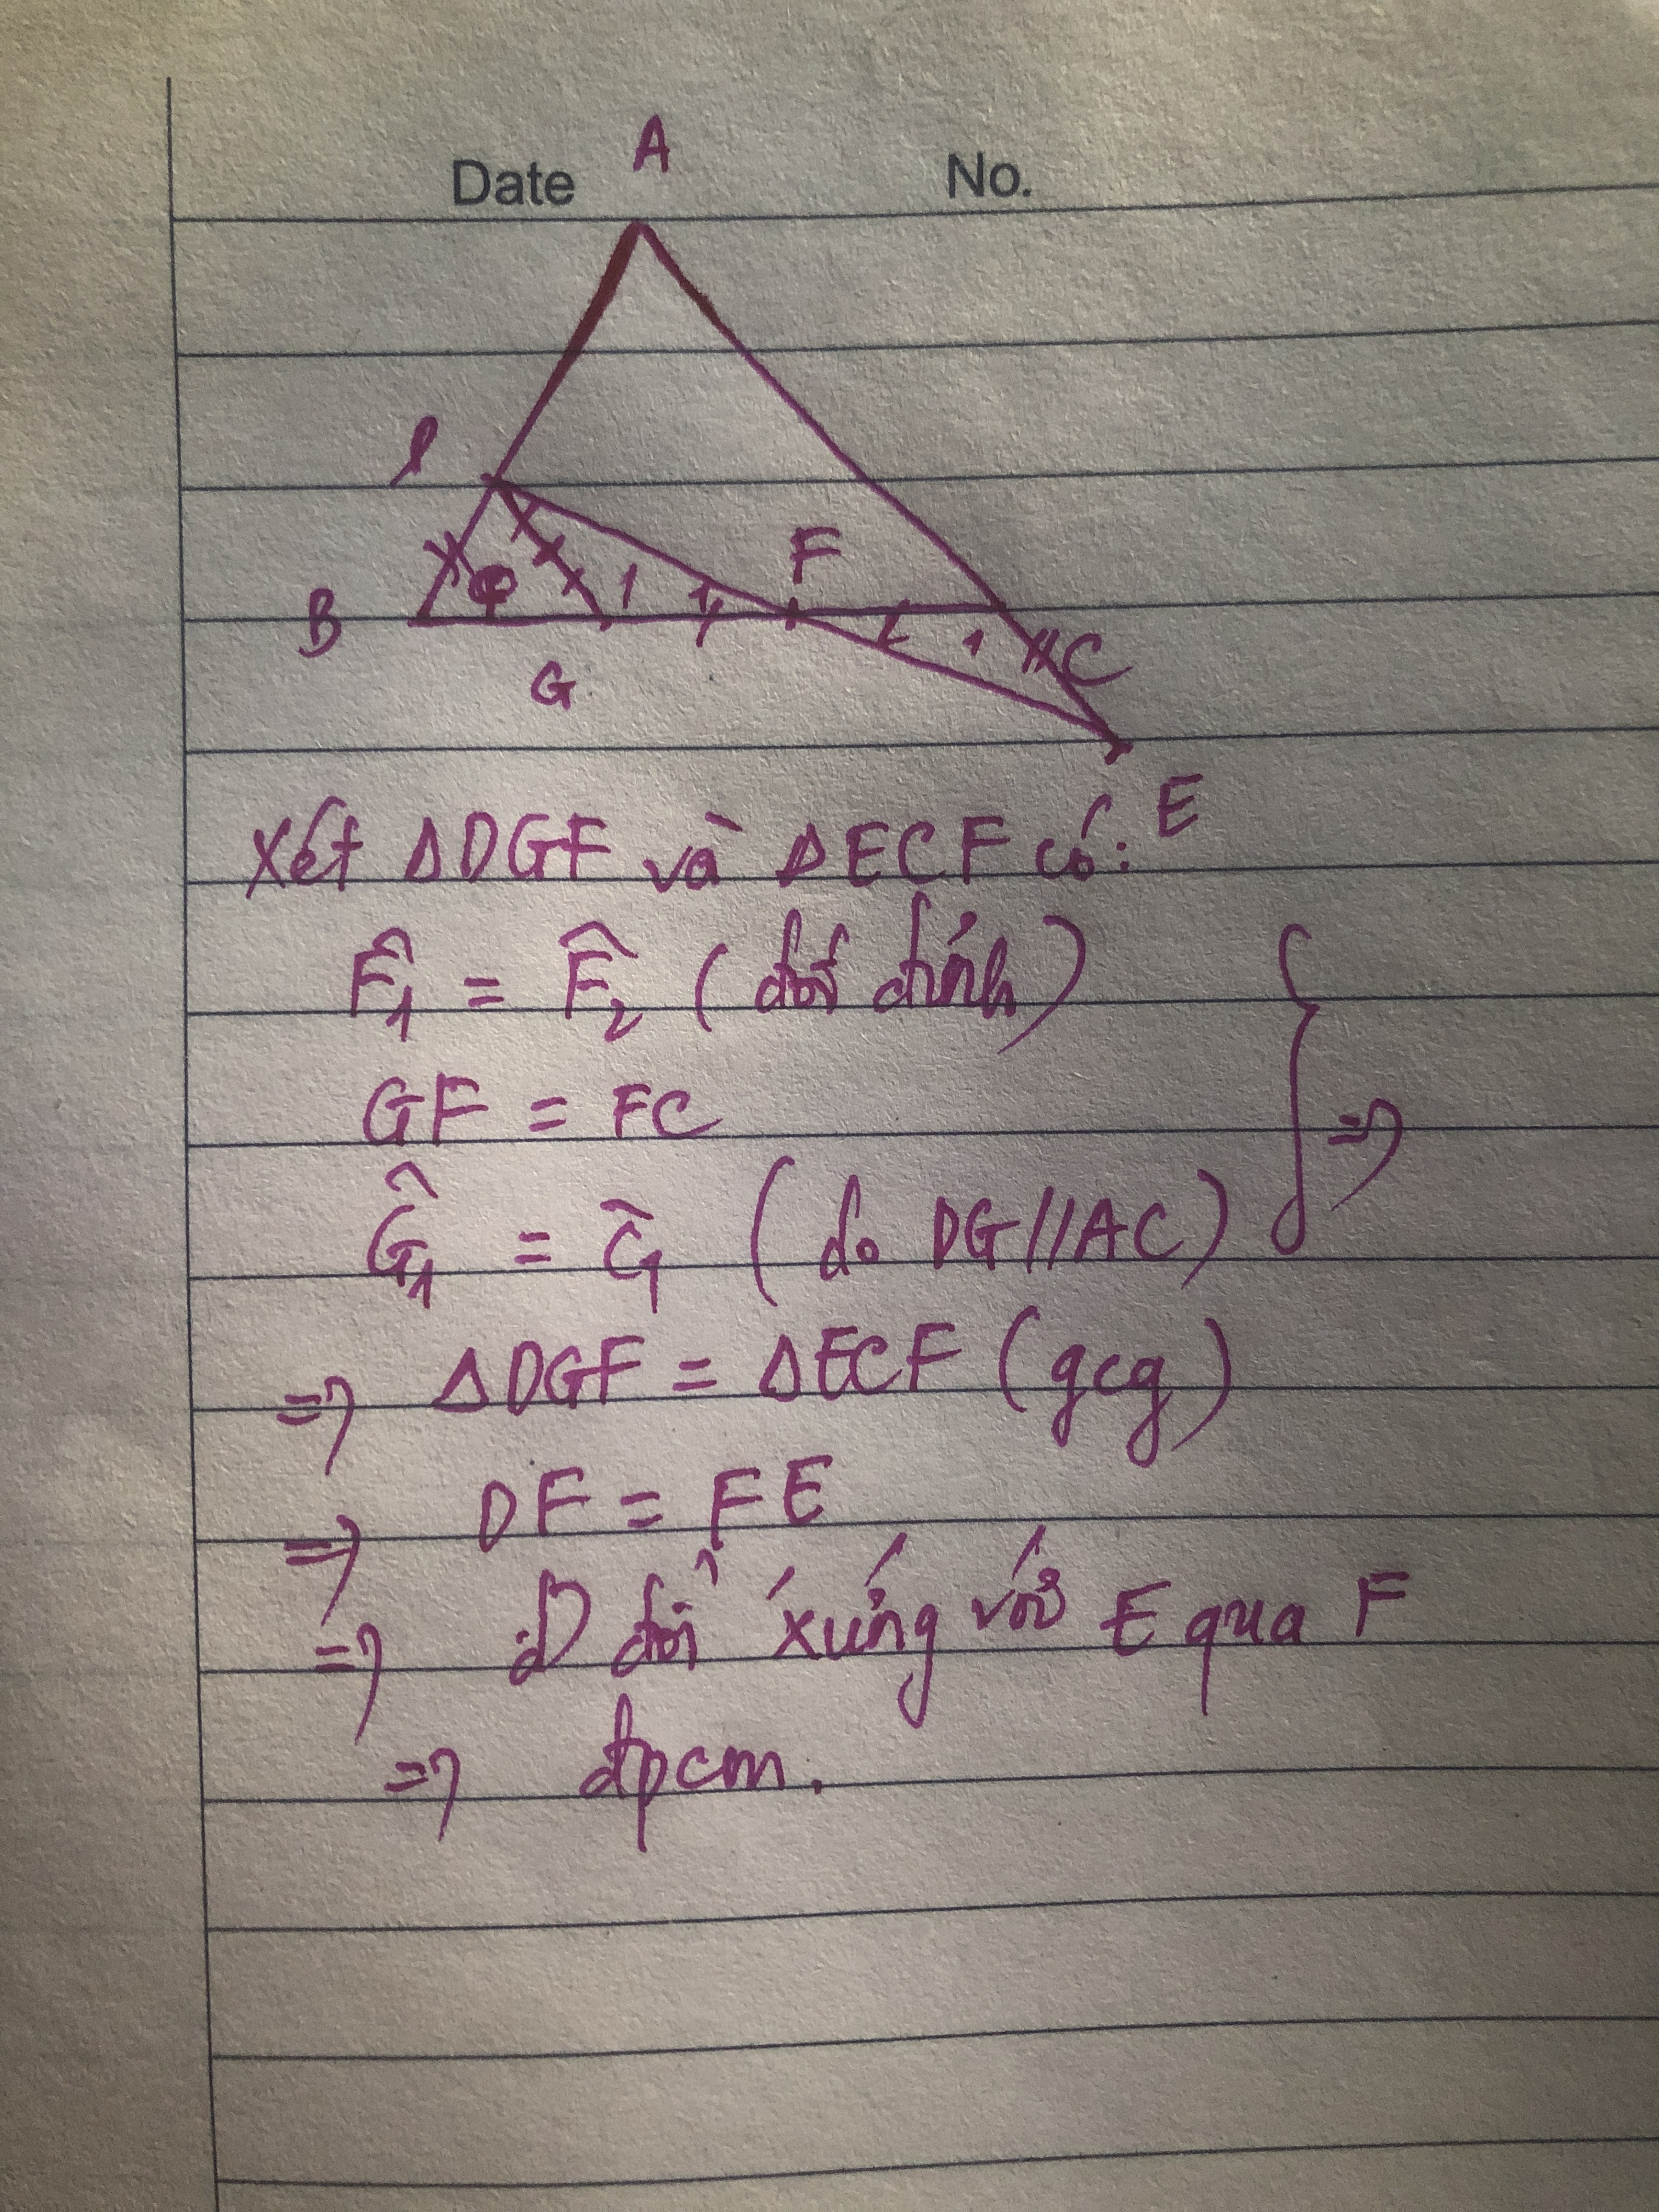 Date
No.
A
B
G
F
C
E
1
1
2
1
Xét ΔDGF và ΔECF có:
F̂₁ = F̂₂ (đối đỉnh)
GF = FC
Ĝ₁ = Ĉ₁ (do DG//AC)
} =>
=> ΔDGF = ΔECF (gcg)
=> DF = FE
=> D đối xứng với E qua F
=> đpcm.